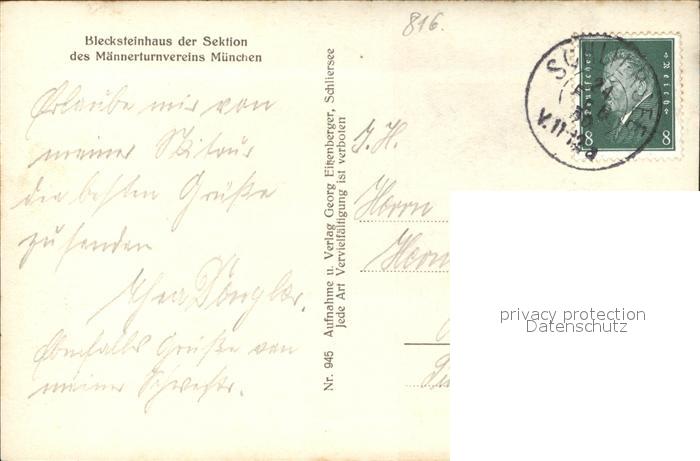 816.
Blecksteinhaus der Sektion
des Männerturnvereins München
Erlaube mir von
meiner Skitour
die besten Grüße
zu senden
Ebenfalls Grüße von
meiner Schwester.
Nr. 945 Aufnahme u. Verlag Georg Eitzenberger, Schliersee
Jede Art Vervielfältigung ist verboten
Deutsches Reich
8 8
S. H.
Herrn
privacy protection
Datenschutz